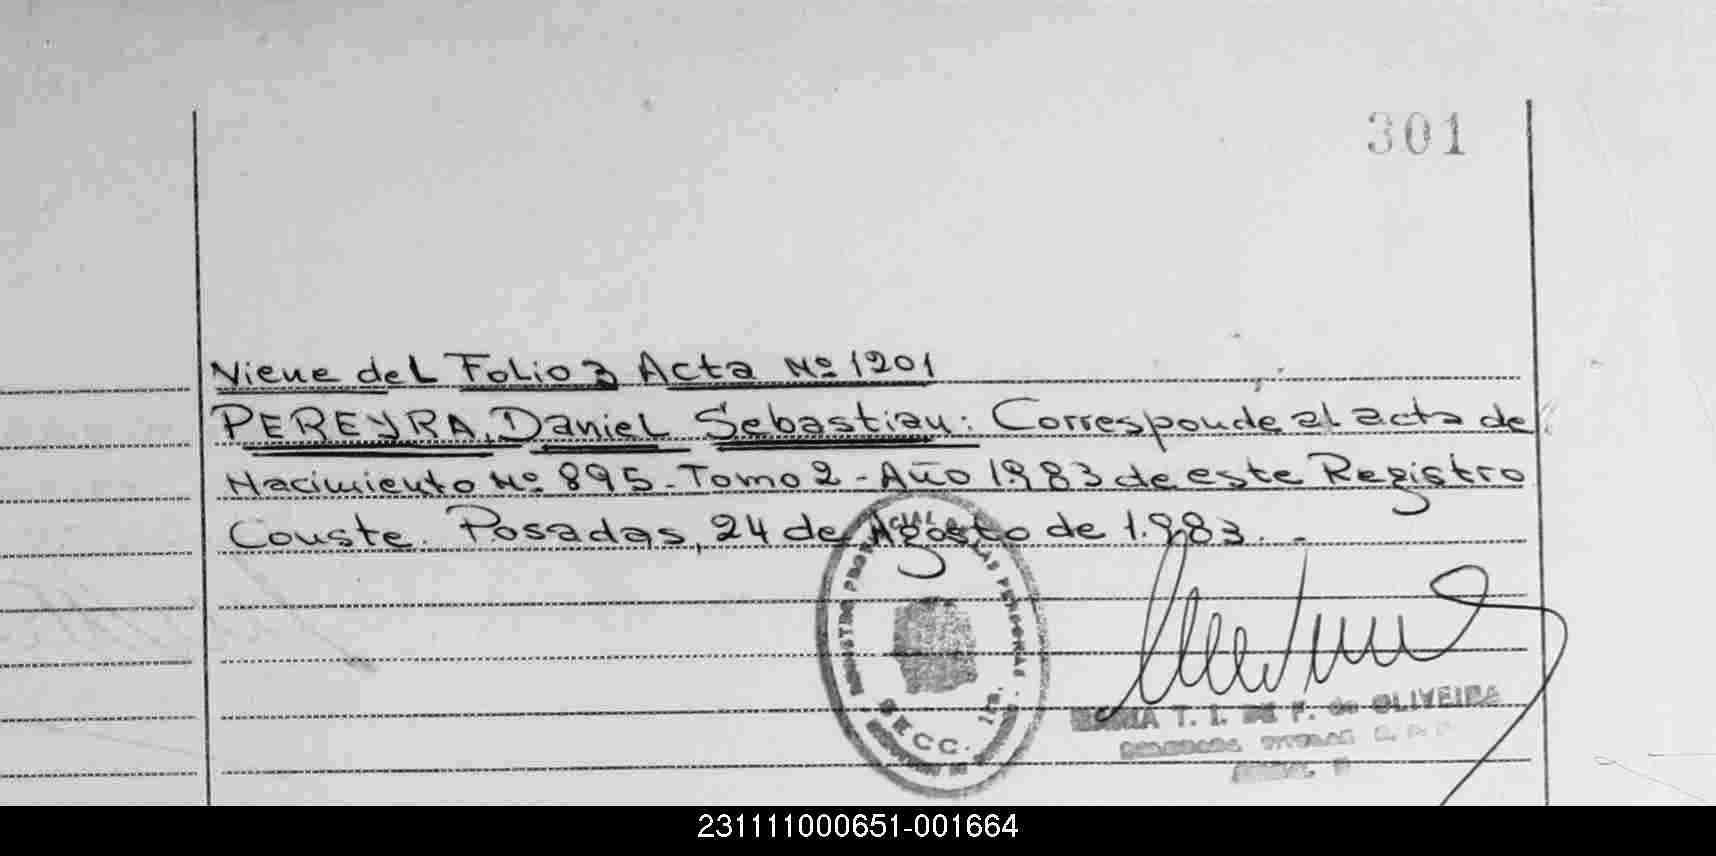 301
Viene del Folio 3 Acta Nº 1201
PEREYRA, Daniel Sebastian: Corresponde al acta de
Nacimiento Nº 895 - Tomo 2 - Año 1983 de este Registro
Conste. Posadas, 24 de Agosto de 1.983. -
REGISTRO PROVINCIAL DE LAS PERSONAS
SECC. 2da.
T. I. DE F. de OLIVEIRA
TITULAR
231111000651-001664